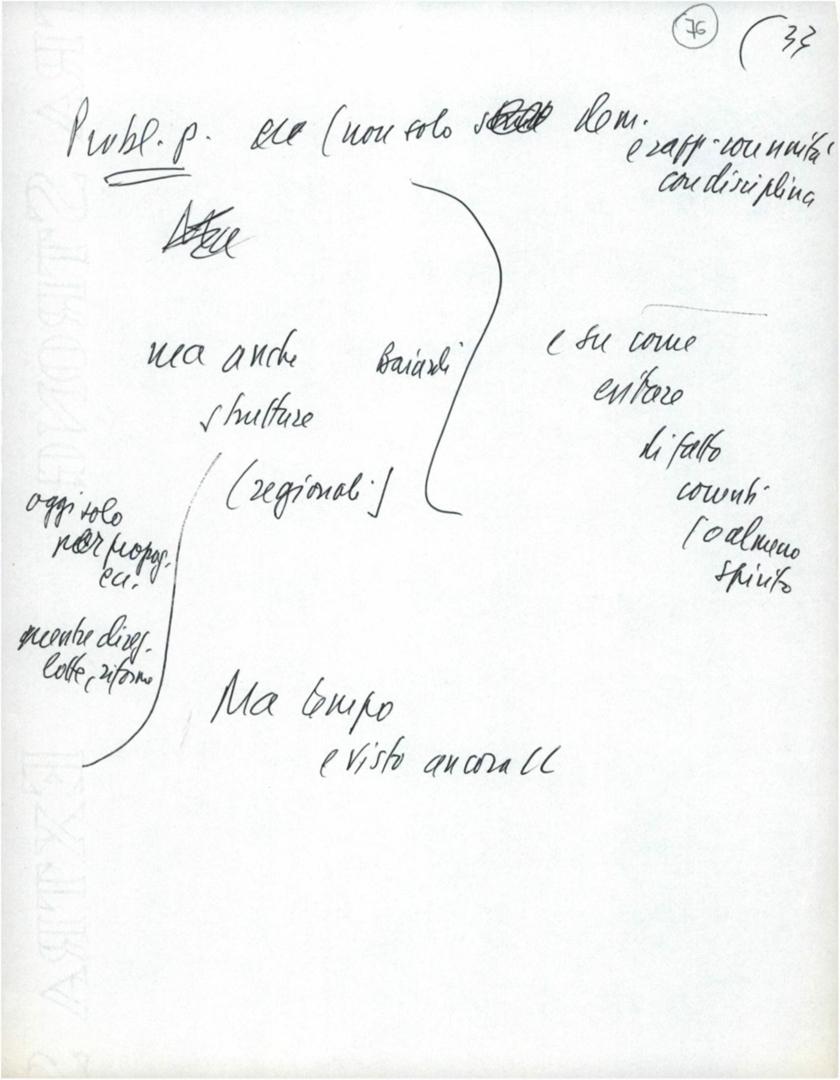 76 (33
Probl. p. ecc (non solo dem.
e rapp. con unità
con disciplina
ma anche
strutture
(regionali)
e su come
evitare
di fatto
correnti
(o almeno
spirito
oggi solo
per propag.
ecc.
mentre direz.
lotte, riforme
Ma tempo
e visto ancora CC